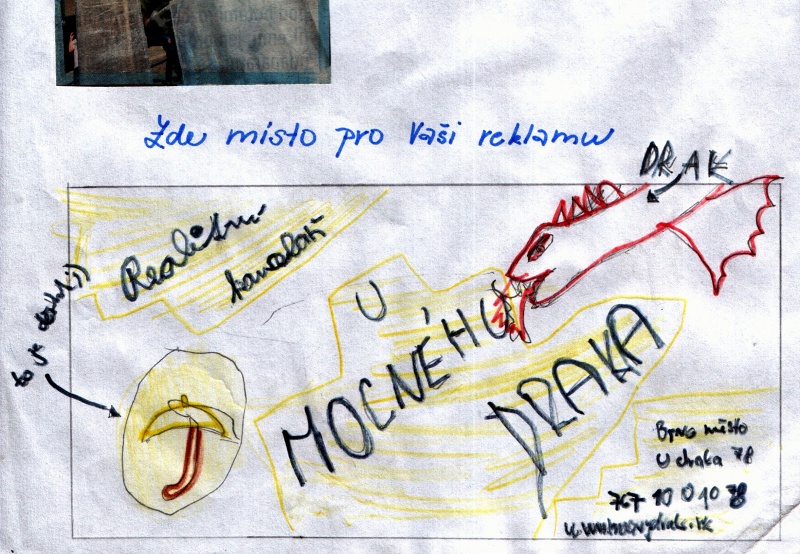 Zde místo pro Vaši reklamu
DRAK
Realitní
kancelář
U
MOCNÉHO
DRAKA
to je
Brno město
U draka 78
767 10 0 10 78